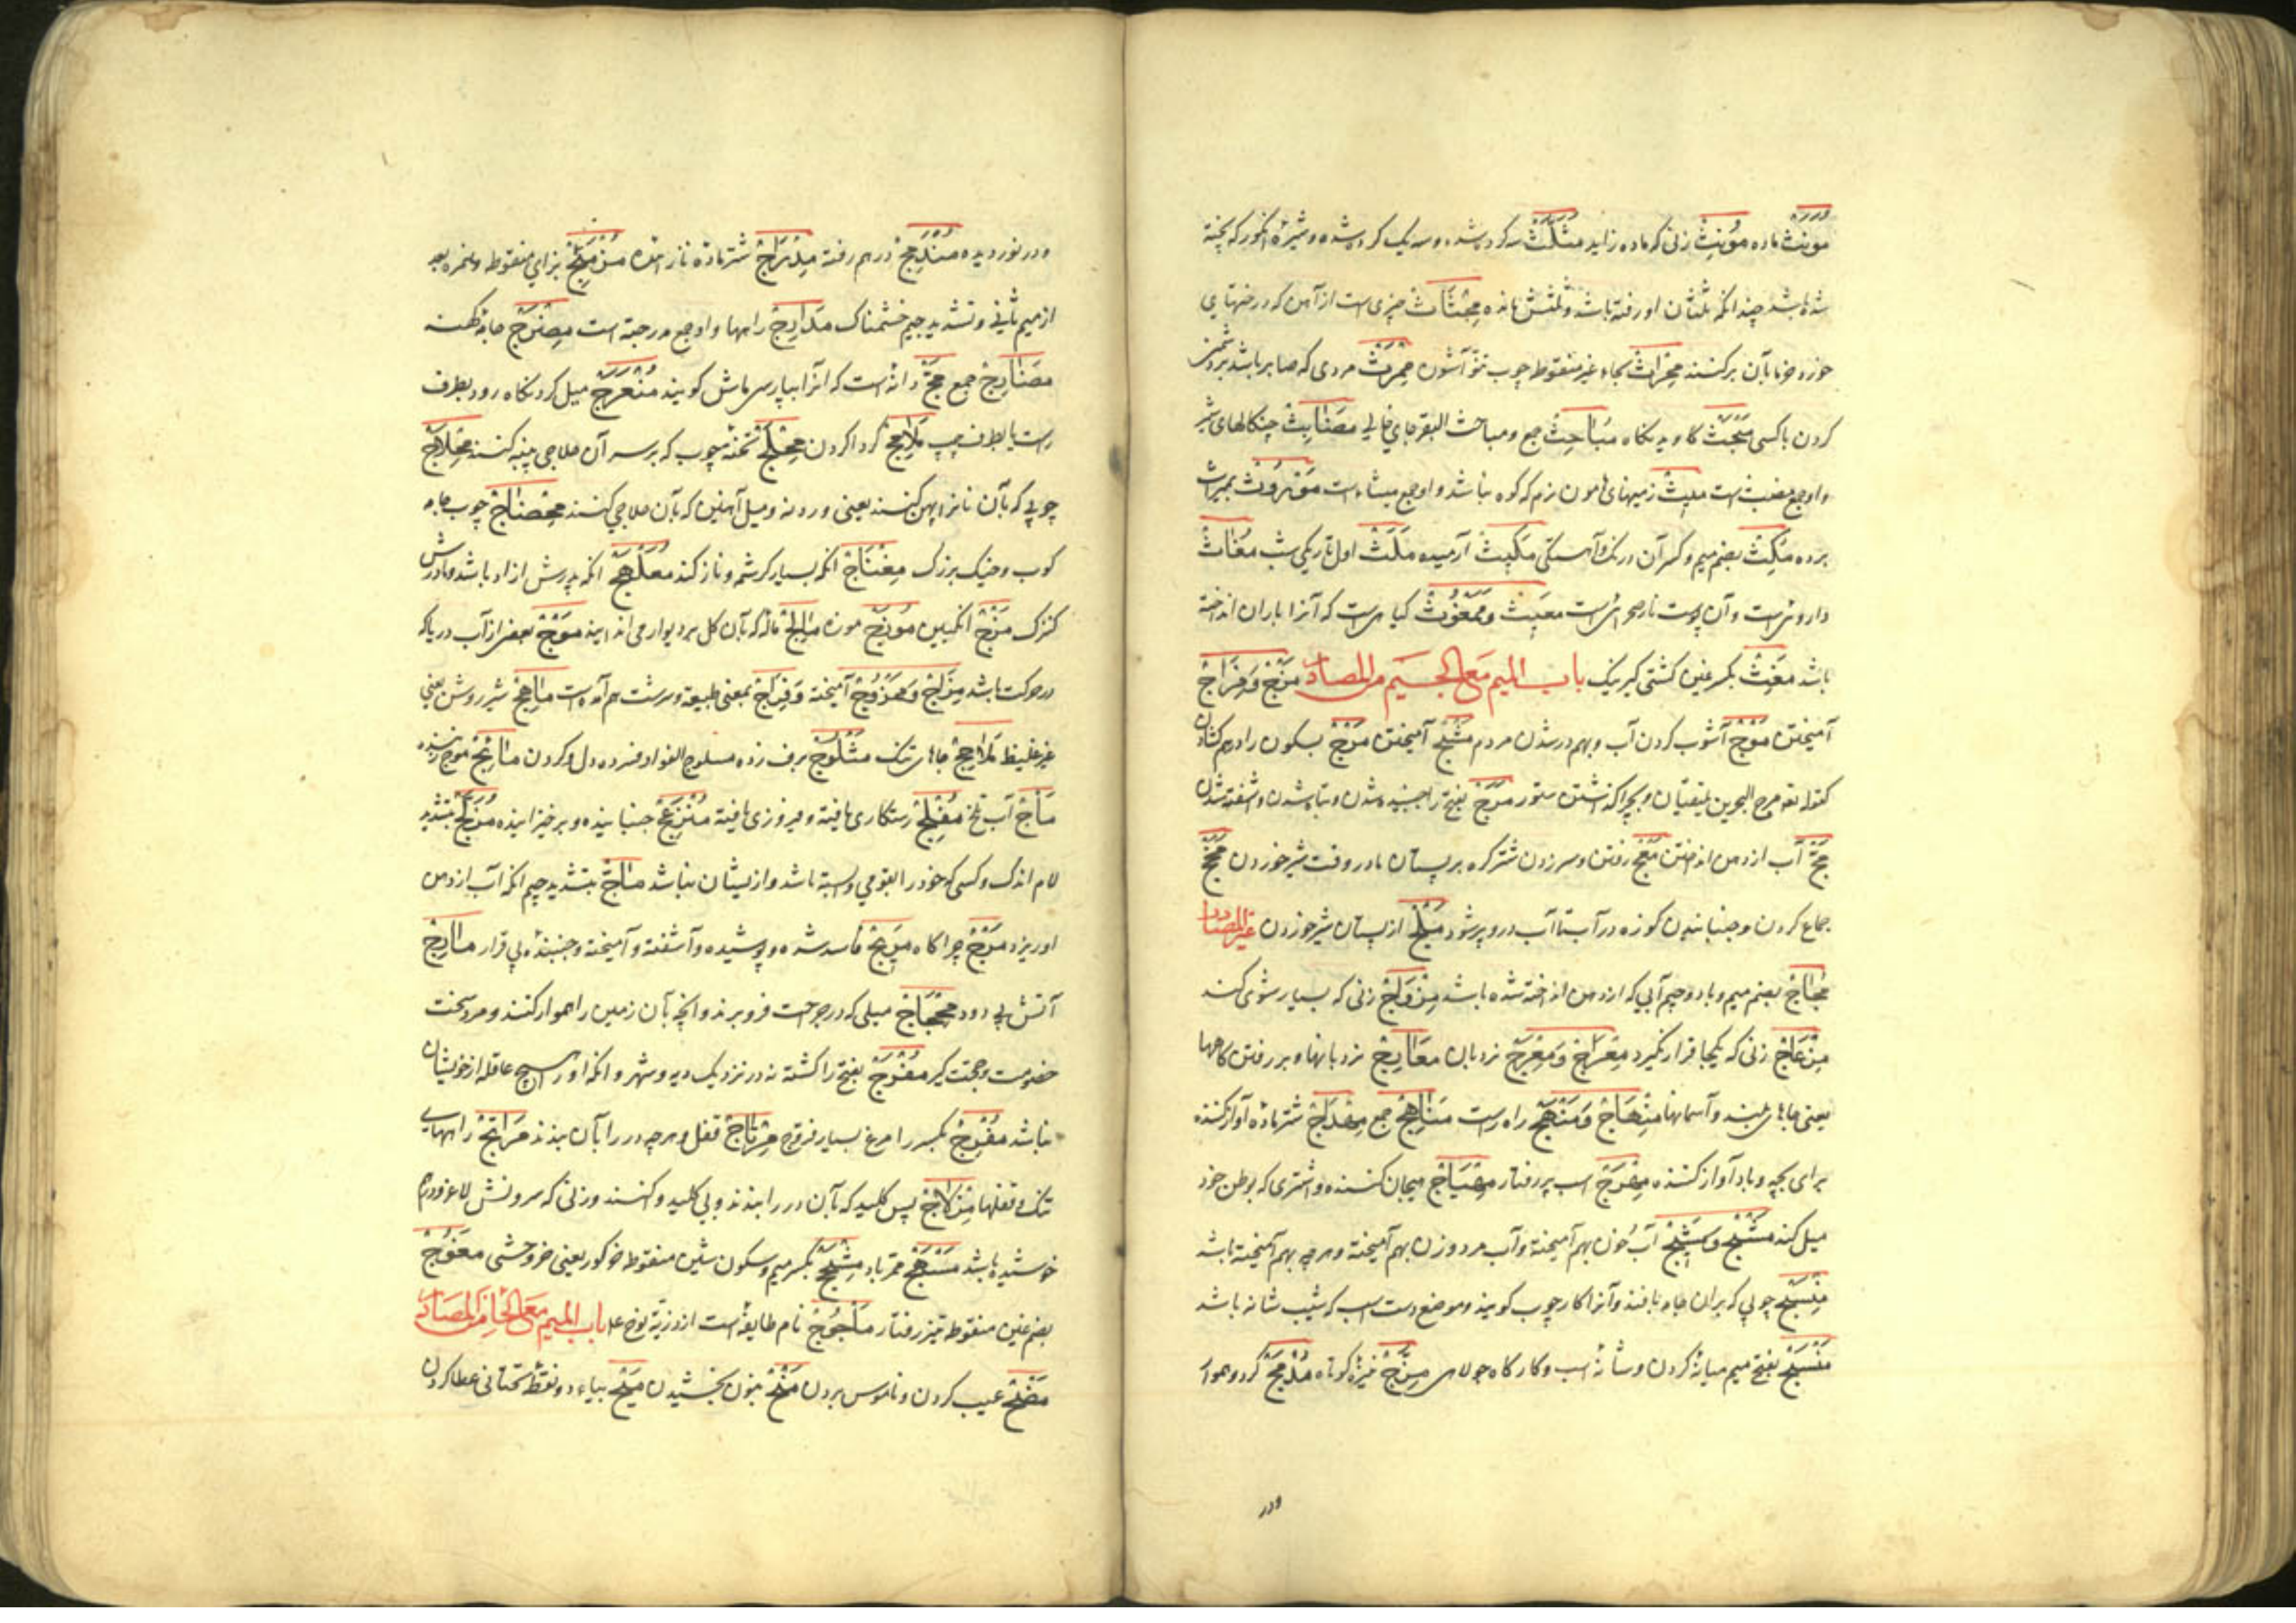 مؤنث ماده مؤنث زنی که ماده زاید مثلث سه کرده شده و سه یک کرده شده و شیرهٔ انکور که پخته
شده باشد چندانکه ثلثان او رفته باشد و ثلثش مانده محثاث چیزی است از آهن که در
بآن برکنند محراث بحاء غیر منقوطه چوب آشون مردی که صابر باشد بر دشمنی
کردن باکسی مبحث کاویدنکاه مباحث جمع ومباحث البقر جای خالی چنکالهای شیر
واوجمع است میث زمینهای هامون نرم که کوه نباشد واوجمع میثاء است موروث بمیراث
برده مکث بضم میم وکسر آن درنک وآهستکی مکیث آرمیده ملث اول تاریکی شب مغاث
داروئی است وآن پوست است مغیث و مغیوث کیاهی است که آنرا باران انداخته
باشد مغث بکسر غین کشتی کیر نیک باب المیم مع الجیم من المصادر مزج ومزاج
آمیختن موج آشوب کردن آب وبهم در شدن مردم مشج آمیختن مرج بسکون را درهم کشادن
کقوله تعم مرج البحرین یلتقیان وبچرا کذاشتن ستور مرج بفتح را جنبیده شدن وتباه شدن وآشفته شدن
مج آب از دهن انداختن معج رفتن وسر زدن شتر کره بر پستان مادر وقت شیر خوردن مخج
جماع کردن وجنبانیدن کوزه در آب تا آب درو پر شود ملج از پستان شیر خوردن غیر المصادر
مجاج بضم میم وباد وجیم آبی که از دهن انداخته شده باشد مزواج زنی که بسیار شوی کند
مزعاج زنی که یکجا قرار نکیرد معراج ومعرج نردبان معارج نردبانها وبر رفتن کاهها
یعنی جاهای بلند وآسمانها منهاج ومنهج راه راست مناهج جمع مهداج شتر ماده آواز کننده
برای بچه وباد آواز کننده مهرج اسب پر رفتار مهیاج هیجان کننده واشتری که بوطن خود
میل کند مشج ومشیج آب خون بهم آمیخته وآب مرد وزن بهم آمیخته وهرچه بهم آمیخته باشد
منسج چوبی که بران جامه بافند وآنرا کارچوب کویند وموضع دست اسب که شیب شانه باشد
منسج بفتح میم میانهٔ کردن وشانهٔ اسب وکارکاه جولاهی مزج نیزهٔ کوتاه مدمج کرد وهموار
ودر
ودر نوردیده مندمج درهم رفته مدراج شتر ماده بزای منقوطه وهمزه بعد
از میم ثانی وتشدید جیم خشمناک مدارج راهها واوجمع مدرجة است جامهٔ کهنه
جمع مج دانه است که آنرا بپارسی ماش کویند منعرج میل کردنکاه رود بطرف
راست یا بطرف چپ کرد اکردن محلج تختهٔ چوب که برسر آن حلاجی پنبه کنند محلاج
چوبی که بآن نانرا پهن کنند یعنی وردنه ومیل آهنین که بآن حلاجی کنند چوب جامه
کوب وخیک بزرک مغناج آنکه بسیار کرشمه وناز کند معلهج آنکه پدرش ازاد باشد ومادرش
کنزک مزج انکبین موزج موزه مالج مالهٔ که بآن کل بر دیوار می اندایند موج بعضی از آب دریا که
در حرکت باشد مزاج وممزوج آمیخته ومزاج بمعنی طبیعة وسرشت هم آمده است ماهج شیر روشن یعنی
غیر غلیظ جاهای تنک مثلوج برف زده مثلوج الفواد فسرده دل وکردن مارج موج زننده
مأج آب تلخ مفلج رستکاری یافته وفیروزی یافته منزعج جنبانیده وبرخیزانیده مزلج بتشدید
لام اندک وکسی که خود را بقومی وابسته باشد واز ایشان نباشد ماج بتشدید جیم آنکه آب از دهن
او ریزد مرج چراکاه مریج فاسد شده وپوشیده وآشفته وآمیخته وجنبنده بی قرار مارج
آتش بی دود محجاج میلی که در جراحت فرو برند وآنچه بآن زمین را هموار کنند ومرد سخت
خصومت وحجت کیر مفرج بفتح را کشته نه در نزدیک دیه وشهر وآنکه او را هیچ عاقله از خویشان
نباشد مفرج بکسر را مرغ بسیار فروج مرتاج قفل وهرچه در را بآن بندند مراتج راههای
تنک وقفلها مزلاج پس کلید که بآن در را بندند وبی کلید وا کنند وزنی که سرونش لاغر ودرهم
خوشیده باشد قمر تابد مشج بکسر میم وسکون شین منقوطه خر کور یعنی خر وحشی معوج
بضم عین منقوطه تیز رفتار ماجوج نام طایفه است از ذریة نوح علا باب المیم مع الحاء من المصادر
مضح عیب کردن وناموس بردن منح بنون بخشیدن میح بیاء دو نقطهٔ تحتانی عطا کردن